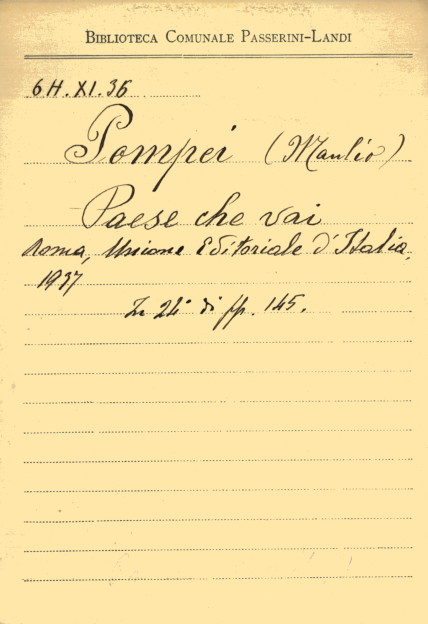 BIBLIOTECA COMUNALE PASSERINI-LANDI
6H.XI.36
Pompei (Manlio)
Paese che vai
Roma, Unione Editoriale d'Italia,
1937
In 24° di pp. 145.